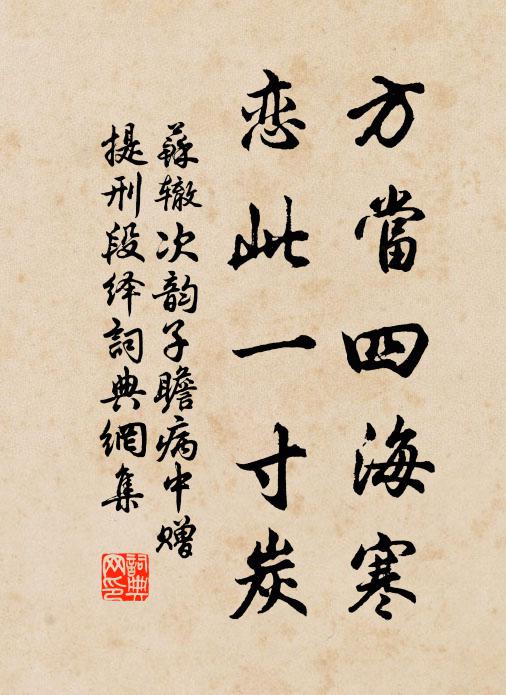 方當四海寒
恋此一寸炭
蘇辙次韵子瞻病中赠
提刑段绎詞典網集
詞典网印